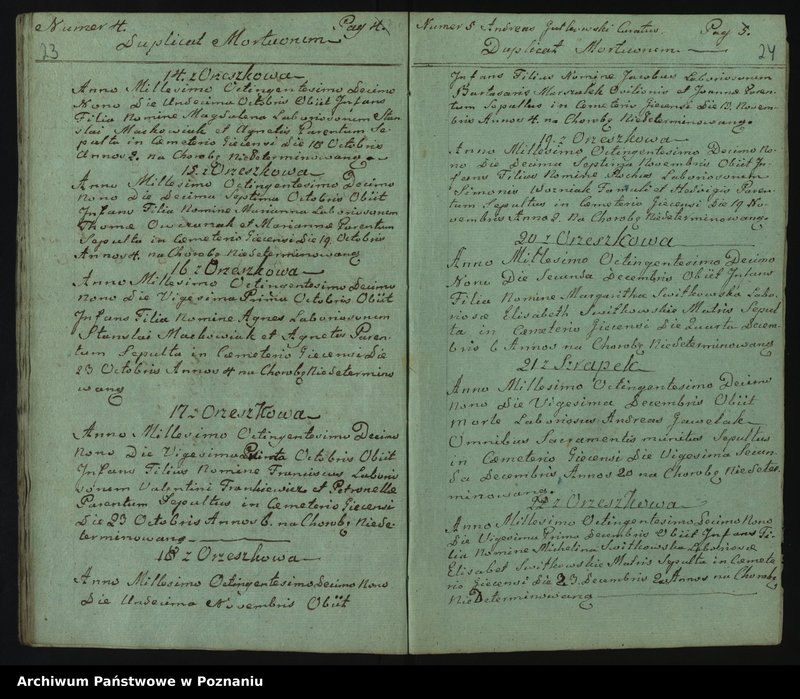 Numer 4. Pag 4.
23
Duplicat Mortuorum
14 z Orzeszkowa
Anno Millesimo Octingentesimo Decimo
Nono Die Undecima Octobris Obiit Infans
Filia Nomine Magdalena Laboriosorum Stan
slai Maskowiak et Agnetis Parentum Se
pulta in Cemeterio Giecensi Die 18 Octobris
Annos 2. na Chorobę Niedeterminowaną.
15 z Orzeszkowa
Anno Millesimo Octingentesimo Decimo
Nono Die Decima Septima Octobris Obiit
Infans Filia Nomine Marianna Laboriosorum
Thomæ Owczunak et Marianna Parentum
Sepulta in Cemeterio Giecensi Die 19. Octobris
Annos 4. na Chorobę Niedeterminowaną
16 z Orzeszkowa
Anno Millesimo Octingentesimo Decimo
Nono Die Vigesima Prima Octobris Obiit
Infans Filia Nomine Agnes Laboriosorum
Stanslai Maskowiak et Agnetis Paren-
tum Sepulta in Cæmeterio Giecensi Die
23 Octobris Annos 4 na Chorobę Niedetermino
waną
17 z Orzeszkowa
Anno Millesimo Octingentesimo Decimo
Nono Die Vigesima Octobris Obiit
Infans Filius Nomine Franciscus Laborio
sorum Valentini Frankiewicz et Petronelle
Parentum Sepultus in Cemeterio Giecensi
Die 23 Octobris Annos 6. na Chorobę Niede-
terminowaną
18 z Orzeszkowa
Anno Millesimo Octingentesimo Decimo Nono
Die Undecima Novembris Obiit
Numer 5 Andreas Gutkowski Curatus. Pag 5.
24
Duplicat Mortuorum
Infans Filius Nomine Jacobus Laboriosorum
Bartasaris Marszałek Ovilionis et Joanna Paren-
tum Sepultus in Cemeterio Giecensi Die 13. Novem-
bris Annos 4. na Chorobę Niedeterminowaną.
19. z Orzeszkowa
Anno Millesimo Octingentesimo Decimo No-
no Die Decima Septima Novembris Obiit In-
fans Filius Nomine Rochus Laboriosorum
Simonis Wozniak Famuli et Hedvigis Paren-
tum Sepultus in Cemeterio Giecensi Die 19 No-
vembris Annos 2. Na Chorobę Niedeterminowaną.
20 z Orzeszkowa
Anno Millesimo Octingentesimo Decimo
Nono Die Secunda Decembris Obiit Infans
Filia Nomine Margaritha Switkowska Labo-
riosæ Elisabeth Switkowskie Matris Sepul
ta in Cæmeterio Giecensi Die Quarta Decem-
bris 6 Annos na Chorobę Niedeterminowaną
21 z Szrapek
Anno Millesimo Octingentesimo Decimo
Nono Die Vigesima Decembris Obiit
Morte Laboriosus Andreas Jawelak
Omnibus Sacramentis munitus Sepultus
in Cæmeterio Giecensi Die Vigesima Secun-
da Decembris Annos 20 na Chorobę Niedeter
minowaną.
22 z Orzeszkowa
Anno Millesimo Octingentesimo Decimo Nono
Die Vigesima Prima Decembris Obiit Infans Fi-
lia Nomine Michelina Switkowska Laboriosæ
Elisabet Switkowskie Matris Sepulta in Cæmete
rio Giecensi Die 23 Decembris 2 Annos na Chorobę
Niedeterminowaną
Archiwum Państwowe w Poznaniu